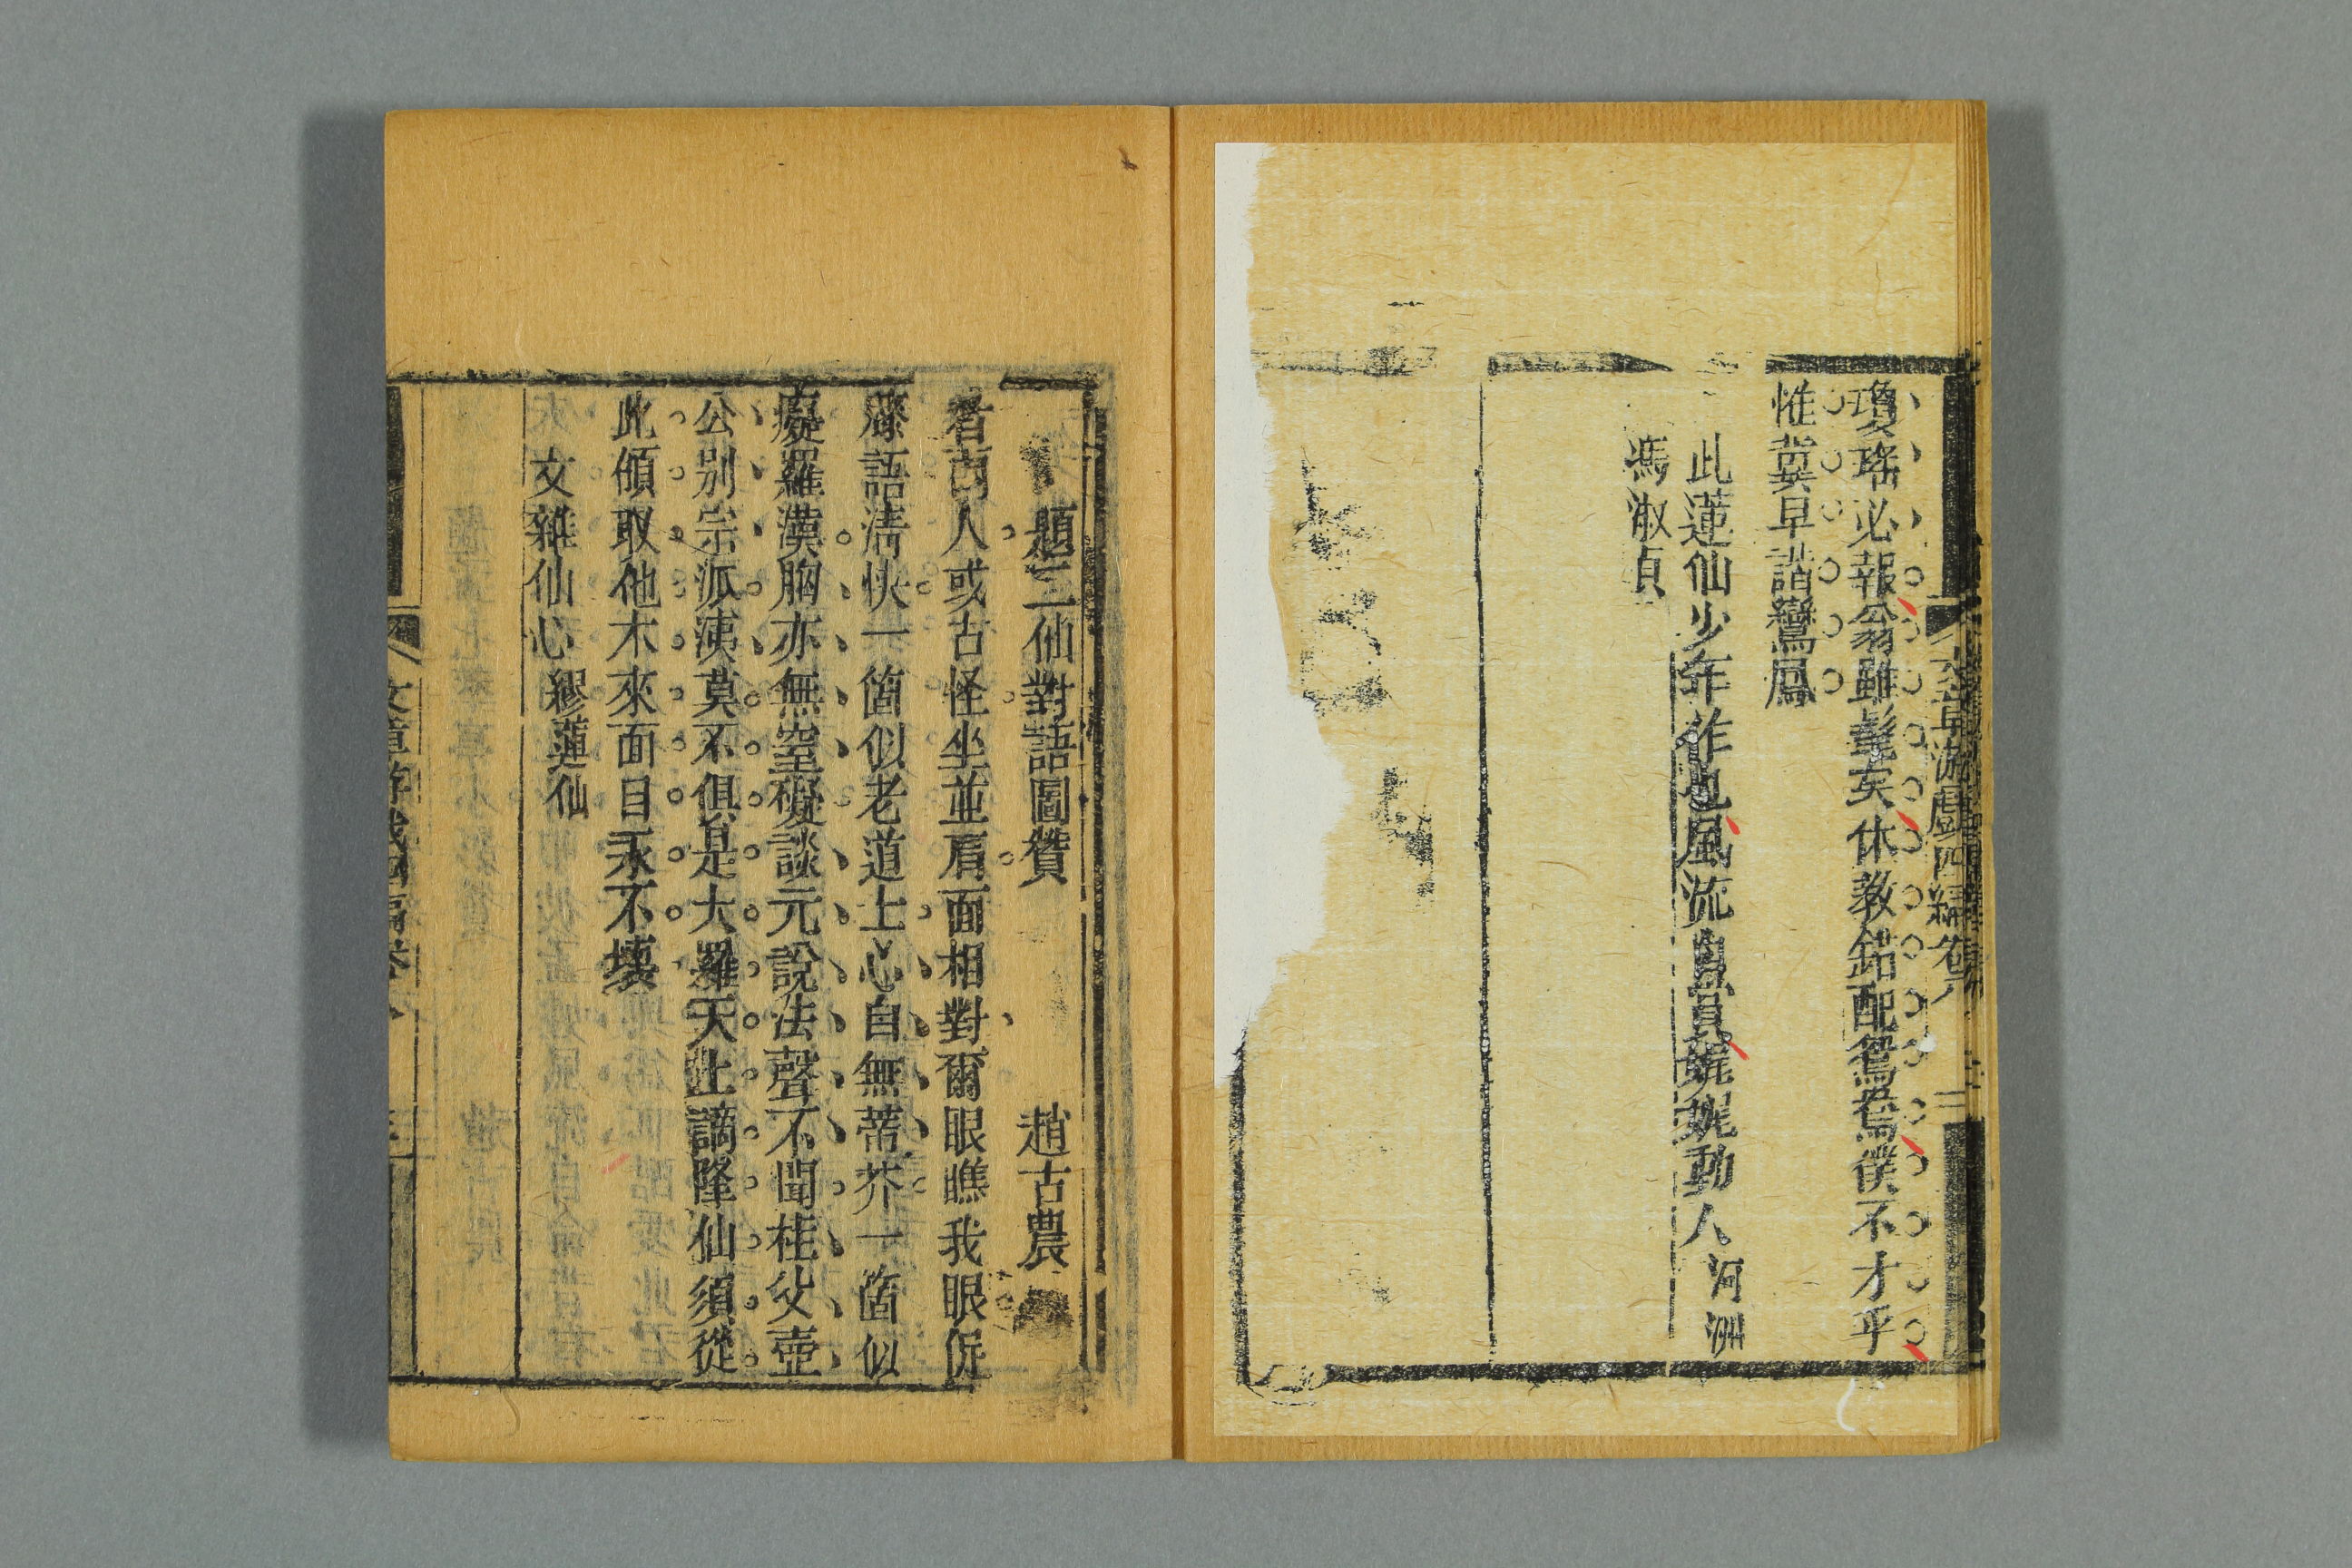 瓊瑤必報翁雖髦矣休教錯配鴛鴦僕不才乎
惟冀早諧鸞鳳
此蓮仙少年作也風流自賞娓娓動人河洲
馮淑貞
文章游戲四編卷八
題二仙對語圖贊 趙古農
看兩人或古怪坐並肩面相對爾眼瞧我眼促
膝語清快一箇似老道士心自無蒂芥一箇似
癡羅漢胸亦無窒礙談元說法聲不聞桂父壺
公別宗派僕莫不俱是大羅天上謫降仙須從
此傾取他本來面目永不壞
文雜仙心繆蓮仙
文章游戲四編卷八